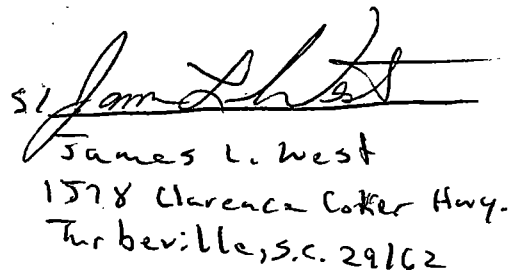 s/ James L. West
James L. West
1578 Clarence Coker Hwy.
Turbeville, S.C. 29162